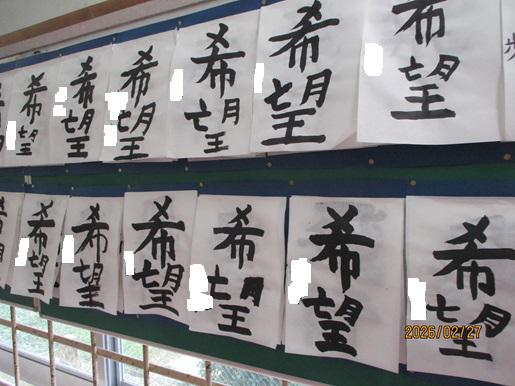 希望
希望
希望
希望
希望
希望
希望
希望
希望
希望
希望
希望
2026/02/27